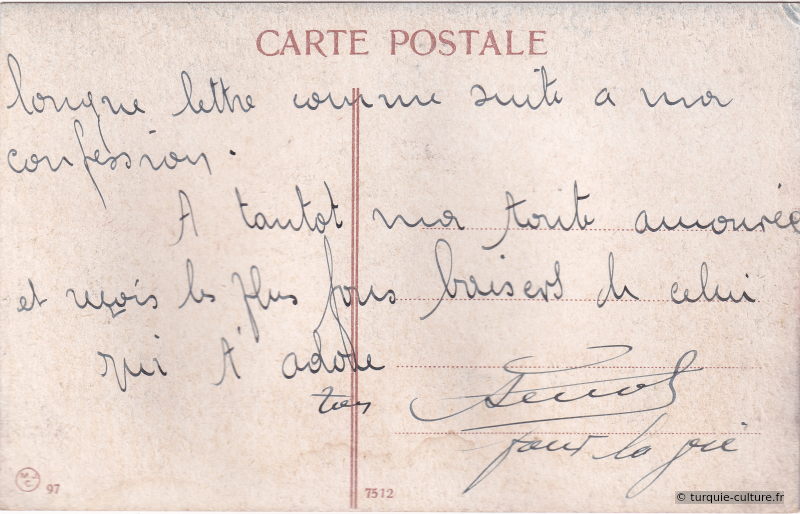 CARTE POSTALE
longue lettre comme suite a ma
confession.
A tantot ma toute amourée
et reçois les plus fous baisers de celui
qui t'adore
ton
pour la
97
7512
© turquie-culture.fr